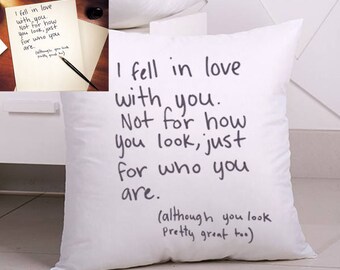 I fell in love
with you.
Not for how
you look, just
for who you
are.
(although you look
pretty great too)
I fell in love
with you.
Not for how
you look, just
for who you
are.
(although you look
Pretty great too)